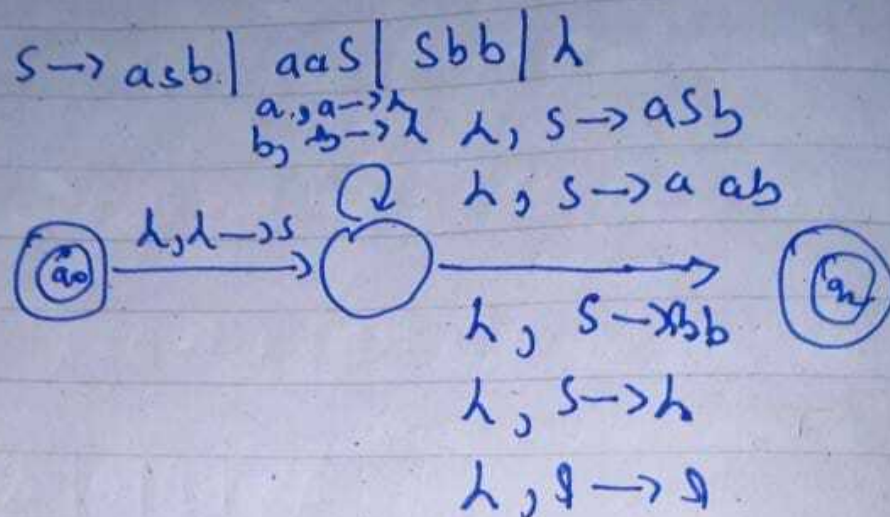 s → asb | aaS | Sbb | λ
a, a → λ
b, b → λ
λ, s → aSb
λ, s → a ab
λ, λ → s
λ, S → bb
λ, S → λ
λ,